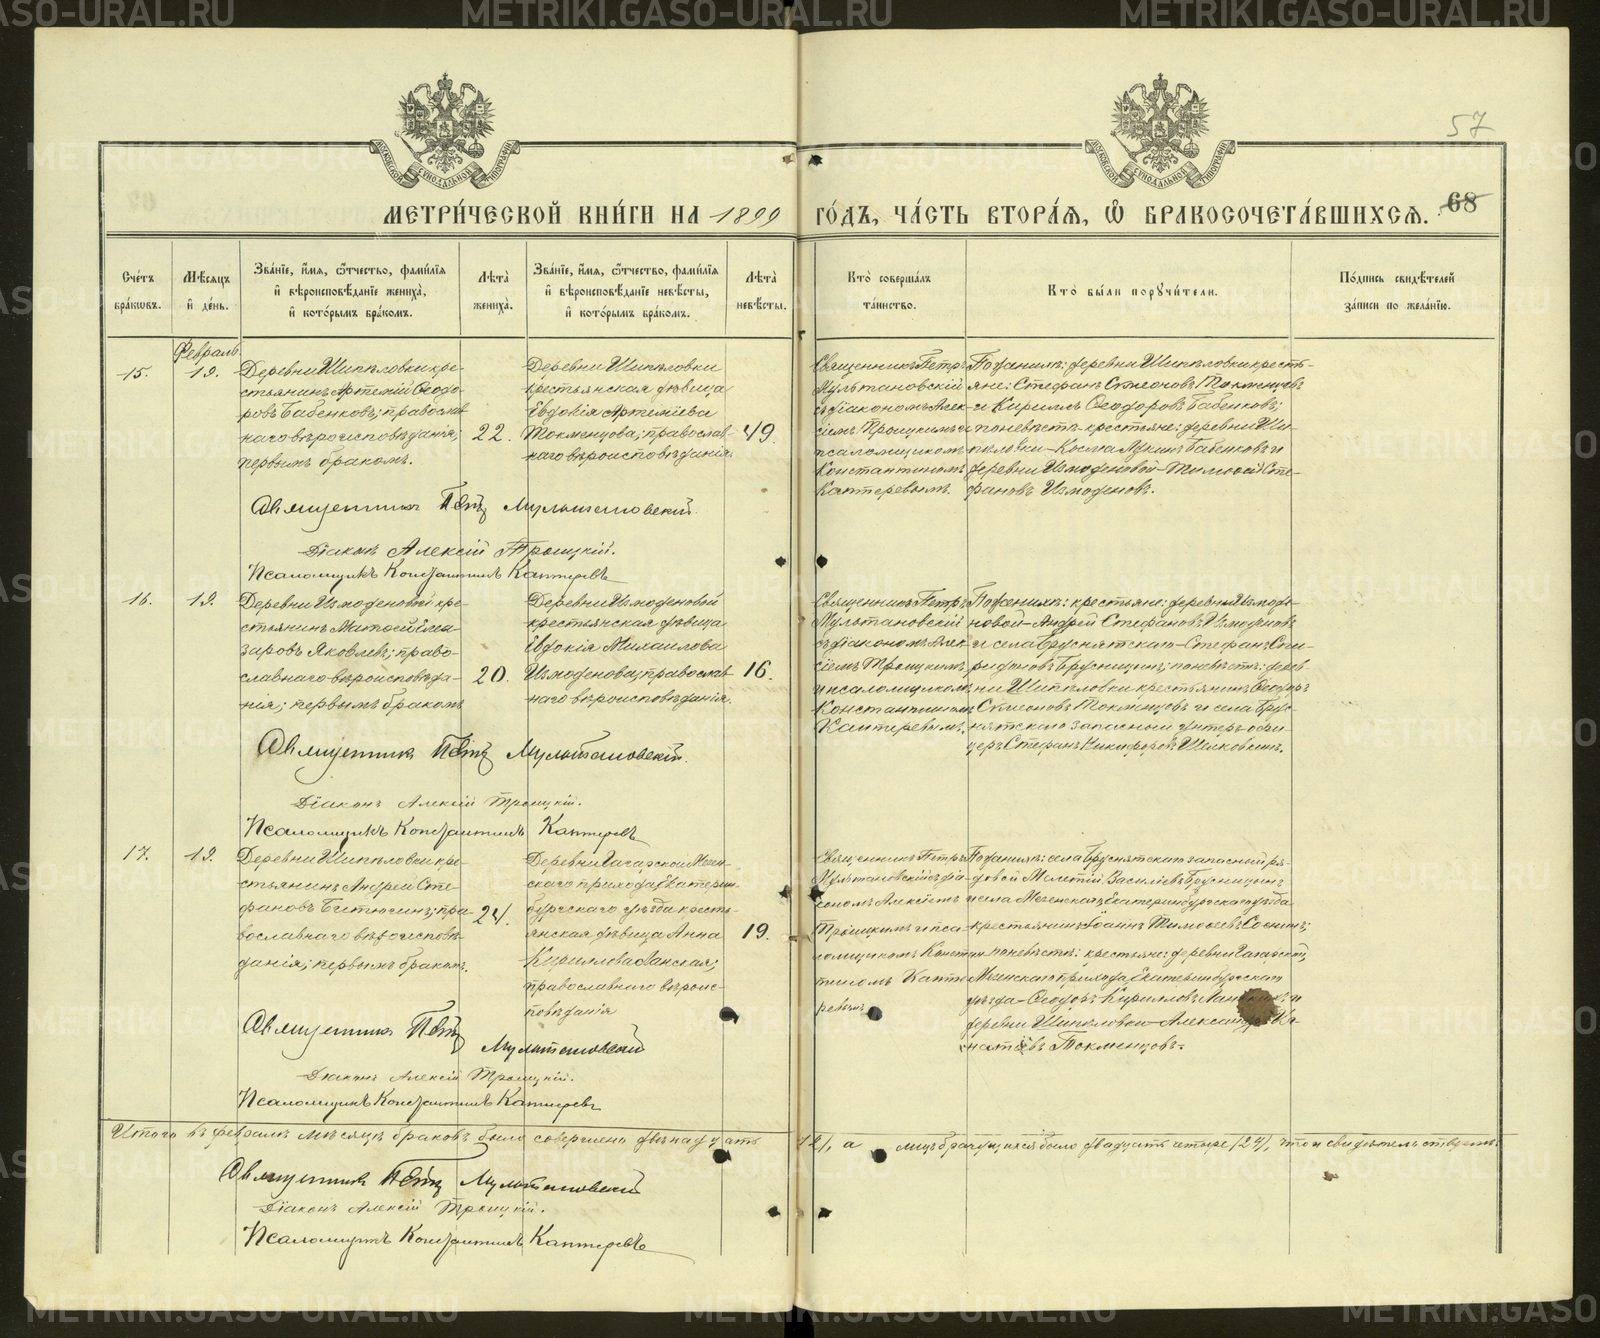 57
68
МЕТРИ́ЧЕСКОЙ КНИ́ГИ НА 1899 ГО́ДЪ, ЧА́СТЬ ВТОРА́Я, Ѿ БРАКОСОЧЕТА́ВШИХСЯ.
Сче́тъ бра́кωвъ.
Мѣ́сяцъ и҆ де́нь.
Зва́нїе, и҆́мя, ѻ҆́тчество, фами́лїя и҆ вѣроисповѣ́данїе жениха̀, и҆ кото́рымъ бра́комъ.
Лѣ́та жениха̀.
Зва́нїе, и҆́мя, ѻ҆́тчество, фами́лїя и҆ вѣроисповѣ́данїе невѣ́сты, и҆ кото́рымъ бра́комъ.
Лѣ́та невѣ́сты.
Кто̀ соверша́лъ та́инство.
Кто̀ бы́ли порꙋчи́тели.
По́дпись свидѣ́телей за́писи по жела́нїю.
Февраль
15.
19.
Деревни Шипѣловки кре-
стьянинъ Артемій Ѳеодо-
ровъ Бабенковъ; православ
наго вѣроисповѣданія;
первымъ бракомъ.
22.
Деревни Шипѣловки
крестьянская дѣвица
Евдокія Артеміева
Токменцова; православ-
наго вѣроисповѣданія.
19.
Священникъ Петръ
Мультановскій
съ діакономъ Алек-
сіемъ Троицкимъ и
псаломщикомъ
Константиномъ
Каптеревымъ.
По женихѣ: деревни Шипѣловки кресть-
яне: Стефанъ Симеоновъ Токменцевъ
и Кириллъ Ѳеодоровъ Бабенковъ;
по невѣстѣ крестьяне: деревни Ши-
пѣловки - Косма Лукинъ Бабенковъ и
деревни Измоденовой - Тимоѳей Сте-
фановъ Измоденовъ.
Священникъ Петръ Мультановскій
Діаконъ Алексій Троицкій.
Псаломщикъ Константинъ Каптеревъ
16.
19.
Деревни Измоденовой кре-
стьянинъ Матѳей Елеа-
заровъ Яковлевъ; право-
славнаго вѣроисповѣда-
нія; первымъ бракомъ
20.
Деревни Измоденовой
крестьянская дѣвица
Евдокія Михаилова
Измоденова; православ
наго вѣроисповѣданія.
16.
Священникъ Петръ
Мультановскій
съ діакономъ Алек-
сіемъ Троицкимъ
и псаломщикомъ
Константиномъ
Каптеревымъ.
По женихѣ: крестьяне: деревни Измоде-
новой - Андрей Стефановъ Измоденовъ
и села Бруснятскаго - Стефанъ Спи-
ридоновъ Брусницинъ; по невѣстѣ: дерев
ни Шипѣловки крестьянинъ Ѳеодоръ
Симеоновъ Токменцевъ и села Брус-
нятскаго запасный унтеръ-офи-
церъ Стефанъ Никифоровъ Шиховкинъ.
Священникъ Петръ Мультановскій.
Діаконъ Алексій Троицкій.
Псаломщикъ Константинъ Каптеревъ
17.
19.
Деревни Шипѣловки кре-
стьянинъ Андрей Сте-
фановъ Битюгинъ; пра-
вославнаго вѣроисповѣ-
данія; первымъ бракомъ.
24.
Деревни Гагарской Мезен-
скаго прихода, Екатерин-
бургскаго уѣзда кресть-
янская дѣвица Анна
Кириллова Ланская;
православнаго вѣроис-
повѣданія
19.
Священникъ Петръ
Мультановскій съ діа-
кономъ Алексіемъ
Троицкимъ и пса-
ломщикомъ Констан
тиномъ Капте
ревымъ
По женихѣ: села Бруснятскаго запасный ря-
довой Мелетій Васильевъ Брусницинъ
и села Мезенскаго, Екатеринбургскаго уѣзда
крестьянинъ Іоаннъ Тимоѳеевъ Соснинъ;
по невѣстѣ: крестьяне: деревни Гагарской,
Мезенскаго прихода, Екатеринбургскаго
уѣзда - Ѳеодоръ Кирилловъ и
деревни Шипѣловки - Александръ Иг-
натіевъ Токменцовъ.
Священникъ Петръ Мультановскій
Діаконъ Алексій Троицкій.
Псаломщикъ Константинъ Каптеревъ
Итого въ февралѣ мѣсяцѣ браковъ было совершено двѣнадцать /12/, а лицъ брачущихся было двадцать четыре /24/, что и свидѣтельствуемъ.
Священникъ Петръ Мультановскій
Діаконъ Алексій Троицкій.
Псаломщикъ Константинъ Каптеревъ
METRIKI.GASO-URAL.RU